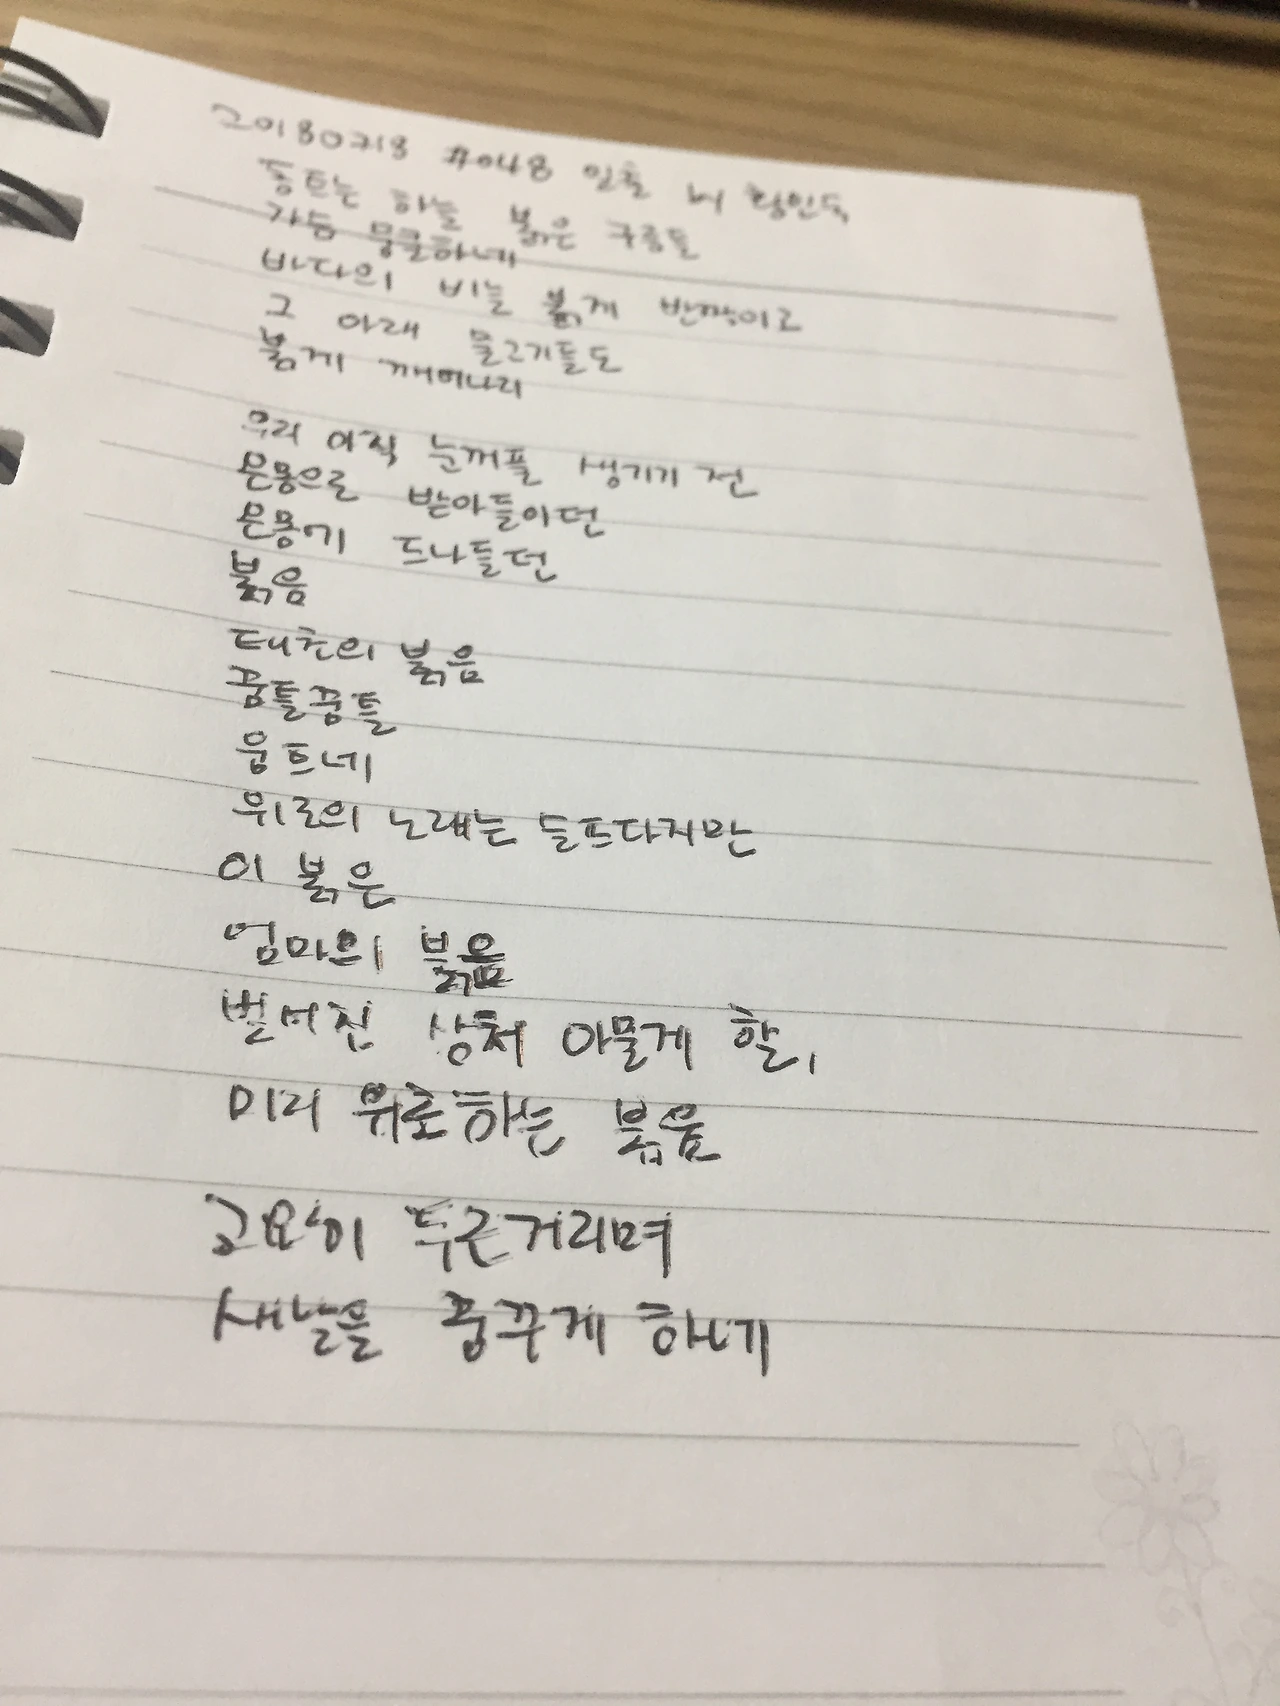 20180718 #048 일출 by 황인숙
동트는 하늘 붉은 구름들
가슴 뭉클하네
바다의 비늘 붉게 반짝이고
그 아래 물고기들도
붉게 깨어나리
우리 아직 눈꺼풀 생기기 전
온몸으로 받아들이던
온몸에 드나들던
붉음
태초의 붉음
꿈틀꿈틀
움트네
위로의 노래는 슬프다지만
이 붉은
엄마의 붉음
벌어진 상처 아물게 할,
미리 위로하는 붉음
고요히 두근거리며
새날을 꿈꾸게 하네